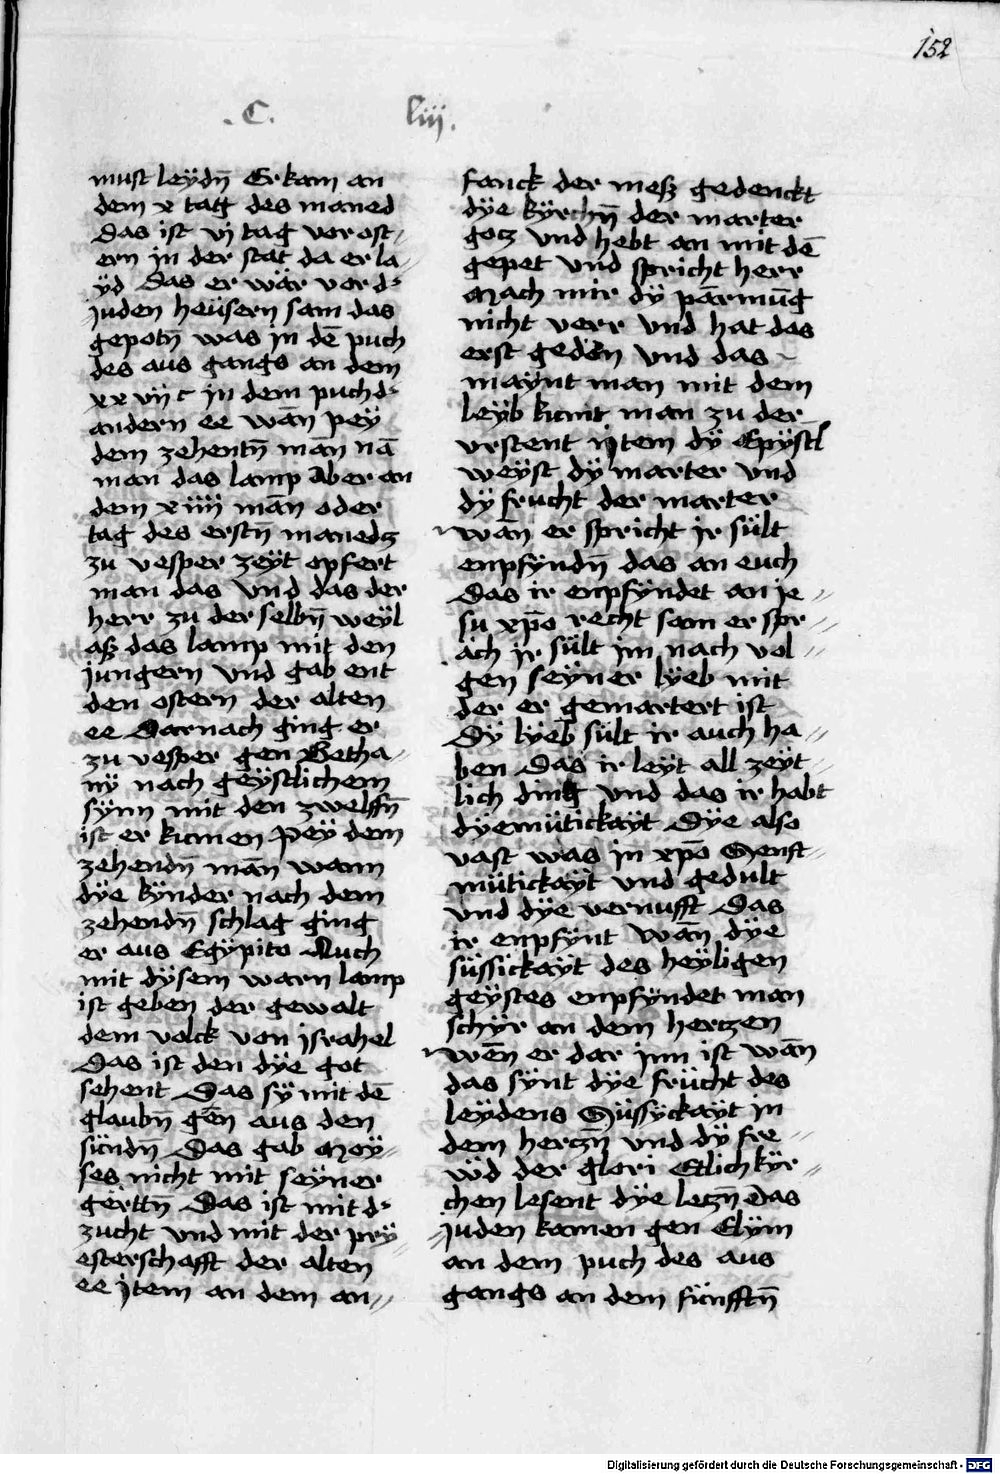 152
.C. liij.
must leydn̄ Er kam an
dem x tag des maned
Das ist vj tag vor ost⸗
ern in der stat da er la⸗
yd Das er wär vor d⸗
Juden heüsern sam das
gepotn̄ was in dē puch
des aus gangs an dem
xx vij c in dem puch d⸗
andern ee wān pey
dem zehentn̄ mān nā
man das lamp Aber an
dem xiiij mān oder
tag des erstn̄ manedz
zu vesper zeÿt opfert
man das vnd das der
herr zu der selbn̄ weÿl
aß das lamp mit den
jungern vnd gab ent
den ostern der alten
ee Darnach ging er
zu vesper gen Betha⸗
nÿ nach geÿstlichem
sÿnn mit den zwelffn̄
ist er kumen Peÿ dem
zehendn̄ mān wann
dÿe kÿnder nach dem
zehendn̄ schlag ging
er aus Egÿpito Auch
mit dÿsem warn lamp
ist geben der gewalt
dem volck von jsrahel
Das ist den dÿe got
sehent Das sÿ mit dē
glaubn̄ gēn aus den
sündn̄ Das gab Moÿ⸗
ses nicht mit seÿner
gerttn̄ Das ist mit d⸗
zucht vnd mit der prÿ⸗
esterschafft der alten
ee jtem an dem an⸗
fanck der meß gedenckt
dÿe kÿrchn̄ der marter
gotz vnd hebt an mit dē
gepet vnd spricht herr
Mach mir dÿ pārmūg
nicht verr vnd hat das
erst geden vnd das
maÿnt man mit dem
leÿb kumt man zu der
vrstent jtem dÿ Epÿstl
weÿst dÿ marter vnd
dÿ frucht der marter
wān er spricht jr sült
enpfÿndn̄ das an euch
Das ir enpfÿndet an je⸗
su xp̄o recht sam er spr⸗
äch jr sült im nach vol⸗
gen seÿner lÿeb mit
der er gemartert ist
Dÿ lÿeb sült ir auch ha⸗
ben Das ir leÿt all zeÿt⸗
lich ding vnd das ir habt
dÿemütickaÿt Dÿe also
vast was in xp̄o Senft⸗
mütickaÿt vnd gedult
vnd dÿe vernufft Das
ir enpfÿnt wān dÿe
süssickaÿt des heÿligen
geÿstes enpfÿndet man
schÿr an dem hertzen
wēn er dar jnn ist wān
das sÿnt dÿe frücht des
leÿdens Süssÿckaÿt in
dem herczn̄ vnd dÿ fre⸗
wd der glori Etlich kÿr⸗
chen lesent dÿe letzn̄ Das
Juden kamen gen Elÿm
an dem puch des aus
gangs an dem fünfftn̄
Digitalisierung gefördert durch die Deutsche Forschungsgemeinschaft - DFG